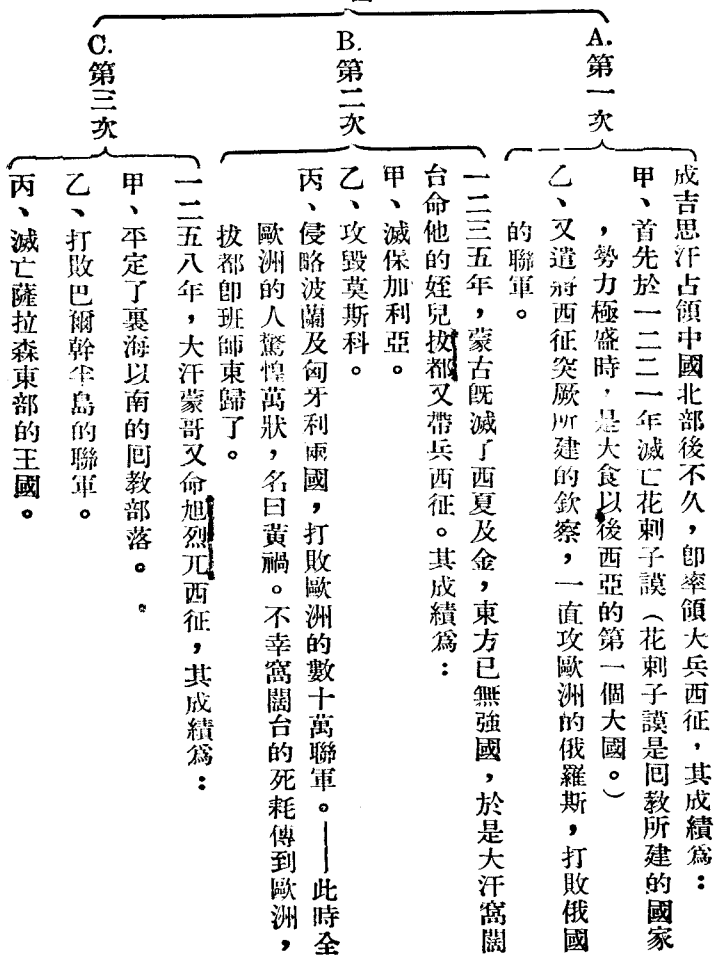 A.第一次
成吉思汗占領中國北部後不久，卽率領大兵西征，其成績爲：
甲、首先於一二二一年滅亡花剌子謨（花剌子謨是囘敎所建的國家
，勢力極盛時，是大食以後西亞的第一個大國。）
乙、又遣將西征突厥所建的欽察，一直攻歐洲的俄羅斯，打敗俄國
的聯軍。
B.第二次
一二三五年，蒙古旣滅了西夏及金，東方已無強國，於是大汗窩闊
台命他的姪兒拔都又帶兵西征。其成績爲：
甲、滅保加利亞。
乙、攻毀莫斯科。
丙、侵略波蘭及匈牙利兩國，打敗歐洲的數十萬聯軍。——此時全
歐洲的人驚惶萬狀，名曰黃禍。不幸窩闊台的死耗傳到歐洲，
拔都卽班師東歸了。
C.第三次
一二五八年，大汗蒙哥又命旭烈兀西征，其成績爲：
甲、平定了裏海以南的囘敎部落。
乙、打敗巴爾幹半島的聯軍。
丙、滅亡薩拉森東部的王國。